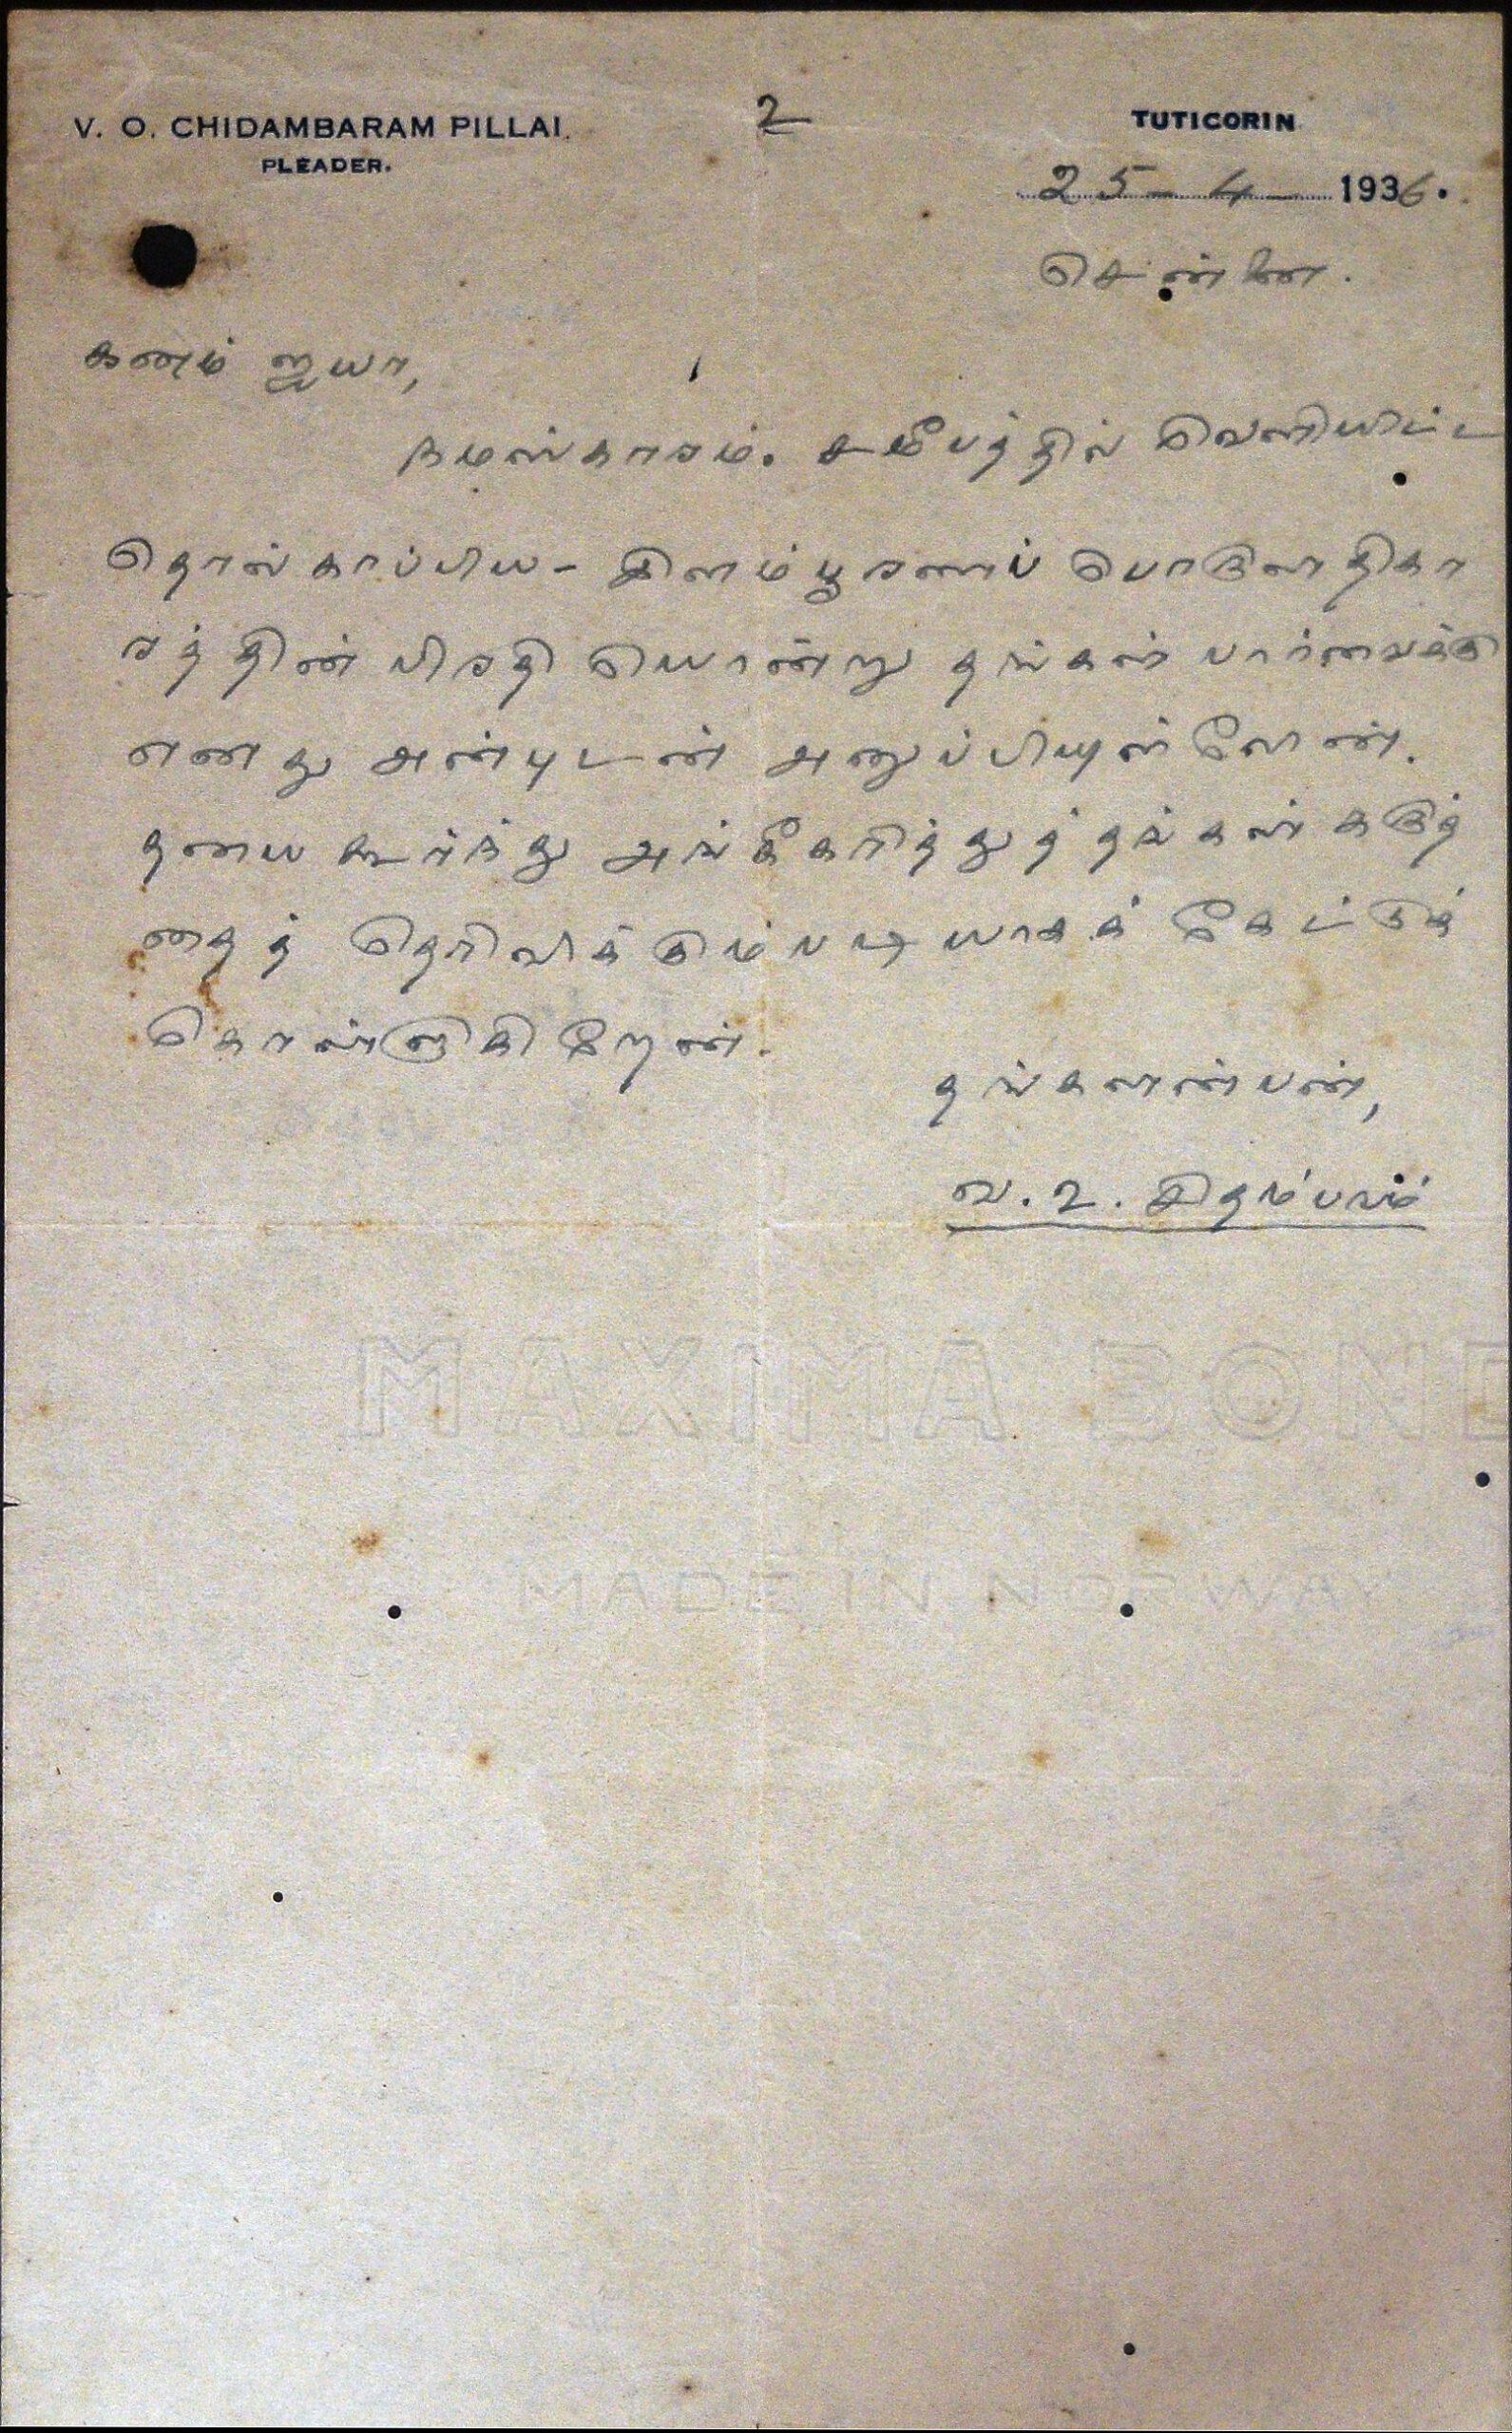 V. O. CHIDAMBARAM PILLAI.
PLEADER.
2
TUTICORIN
25-4-1936.
சென்னை.
கனம் ஐயா,
நமஸ்காரம். சமீபத்தில் வெளியிட்ட
தொல்காப்பிய - இளம்பூரணப் பொருளதிகா
ரத்தின் பிரதி யொன்று தங்கள் பார்வைக்கு
எனது அன்புடன் அனுப்பியுள்ளேன்.
தயைகூர்ந்து அங்கீகரித்துத் தங்கள் கருத்
தைத் தெரிவிக்கும்படியாகக் கேட்டுக்
கொள்ளுகிறேன்.
தங்களன்பன்,
வ. உ. சிதம்பரம்
MAXIMA BOND
MADE IN NORWAY